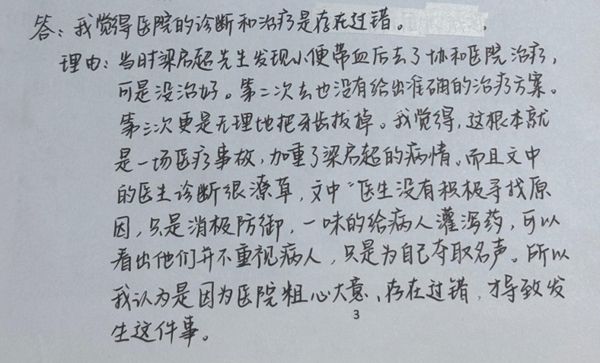 答：我觉得医院的诊断和治疗是存在过错。
理由：当时梁启超先生发现小便带血后去了协和医院治疗，
可是没治好。第二次去也没有给出准确的治疗方案。
第三次更是无理地把牙齿拔掉。我觉得，这根本就
是一场医疗事故，加重了梁启超的病情。而且文中
的医生诊断很潦草，文中“医生没有积极寻找原
因，只是消极防御，一味的给病人灌泻药，可以
看出他们并不重视病人，只是为自己夺取名声。所以
我认为是因为医院粗心大意、存在过错，才导致发
生这件事。
3